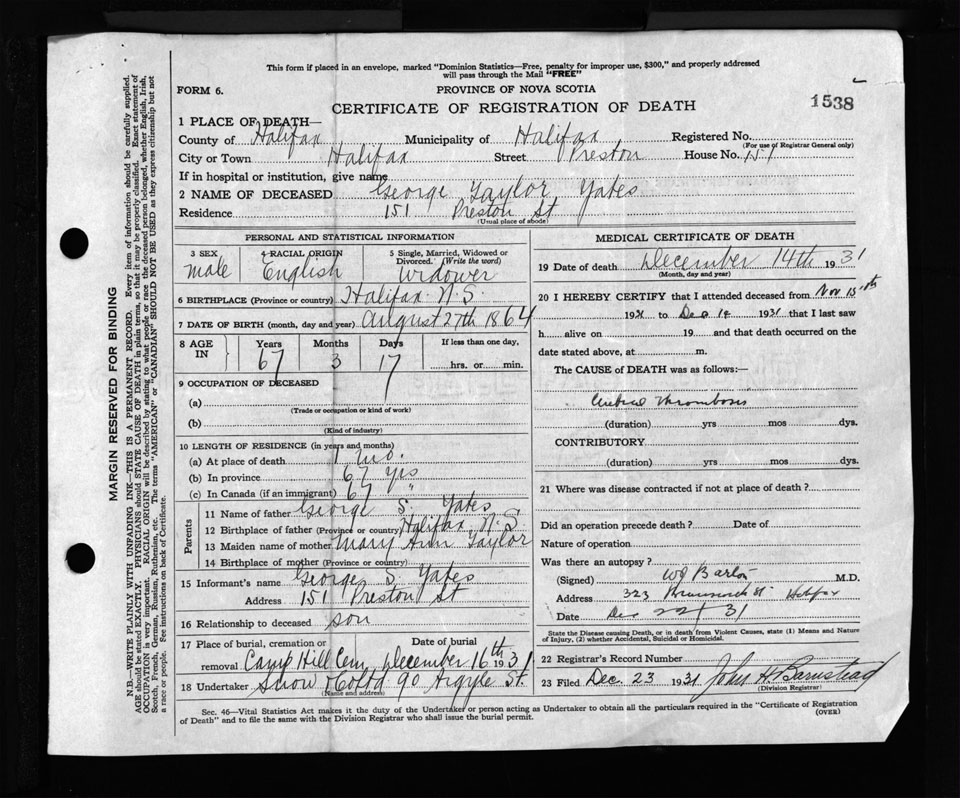 This form if placed in an envelope, marked "Dominion Statistics—Free, penalty for improper use, $300," and properly addressed
will pass through the Mail "FREE"
FORM 6.
PROVINCE OF NOVA SCOTIA
CERTIFICATE OF REGISTRATION OF DEATH
1538
1 PLACE OF DEATH—
County of Halifax Municipality of Halifax Registered No.
(For use of Registrar General only)
City or Town Halifax Street Preston House No. 151
If in hospital or institution, give name
2 NAME OF DECEASED George Taylor Yates
Residence 151 Preston St
(Usual place of abode)
PERSONAL AND STATISTICAL INFORMATION
3 SEX male
4 RACIAL ORIGIN English
5 Single, Married, Widowed or Divorced. (Write the word) Widower
6 BIRTHPLACE (Province or country) Halifax N.S.
7 DATE OF BIRTH (month, day and year) August 27th 1864
8 AGE IN Years 67 Months 3 Days 17 If less than one day, hrs. or min.
9 OCCUPATION OF DECEASED
(a)
(Trade or occupation or kind of work)
(b)
(Kind of industry)
10 LENGTH OF RESIDENCE (in years and months)
(a) At place of death 1 mo.
(b) In province 67 yrs
(c) In Canada (if an immigrant) 67 "
Parents
11 Name of father George S. Yates
12 Birthplace of father (Province or country) Halifax N.S
13 Maiden name of mother Mary Ann Taylor
14 Birthplace of mother (Province or country)
15 Informant's name George S. Yates
Address 151 Preston St
16 Relationship to deceased son
17 Place of burial, cremation or removal Camp Hill Cem Date of burial December 16th 1931
18 Undertaker Snow & Co Ltd 90 Argyle St.
(Name and address)
MEDICAL CERTIFICATE OF DEATH
19 Date of death December 14th 1931
(Month, day and year)
20 I HEREBY CERTIFY that I attended deceased from Nov 15th
1931 to Dec 14 1931 that I last saw
h alive on 19 and that death occurred on the
date stated above, at m.
The CAUSE of DEATH was as follows:—
Cerebral Thrombosis
(duration) yrs mos dys.
CONTRIBUTORY
(duration) yrs mos dys.
21 Where was disease contracted if not at place of death?
Did an operation precede death? Date of
Nature of operation
Was there an autopsy?
(Signed) M.D.
Address 323 Brunswick St. Halifax
Date Dec 22 / 31
State the Disease causing Death, or in death from Violent Causes, state (1) Means and Nature
of Injury, (2) whether Accidental, Suicidal or Homicidal.
22 Registrar's Record Number
23 Filed Dec. 23 1931 John H Barnstead
(Division Registrar)
Sec. 46—Vital Statistics Act makes it the duty of the Undertaker or person acting as Undertaker to obtain all the particulars required in the "Certificate of Registration
of Death" and to file the same with the Division Registrar who shall issue the burial permit.
(OVER)
MARGIN RESERVED FOR BINDING
N.B.—WRITE PLAINLY WITH UNFADING INK—THIS IS A PERMANENT RECORD. Every item of information should be carefully supplied.
AGE should be stated EXACTLY. PHYSICIANS should STATE CAUSE OF DEATH in plain terms, so that it may be properly classified. Exact statement of
OCCUPATION is very important. RACIAL ORIGIN will be described by stating to what people or race the deceased person belonged, whether English, Irish,
Scotch, French, German, Russian, Ruthenian, etc. The terms "AMERICAN" or "CANADIAN" SHOULD NOT BE USED as they express citizenship but not
a race or people. See instructions on back of Certificate.